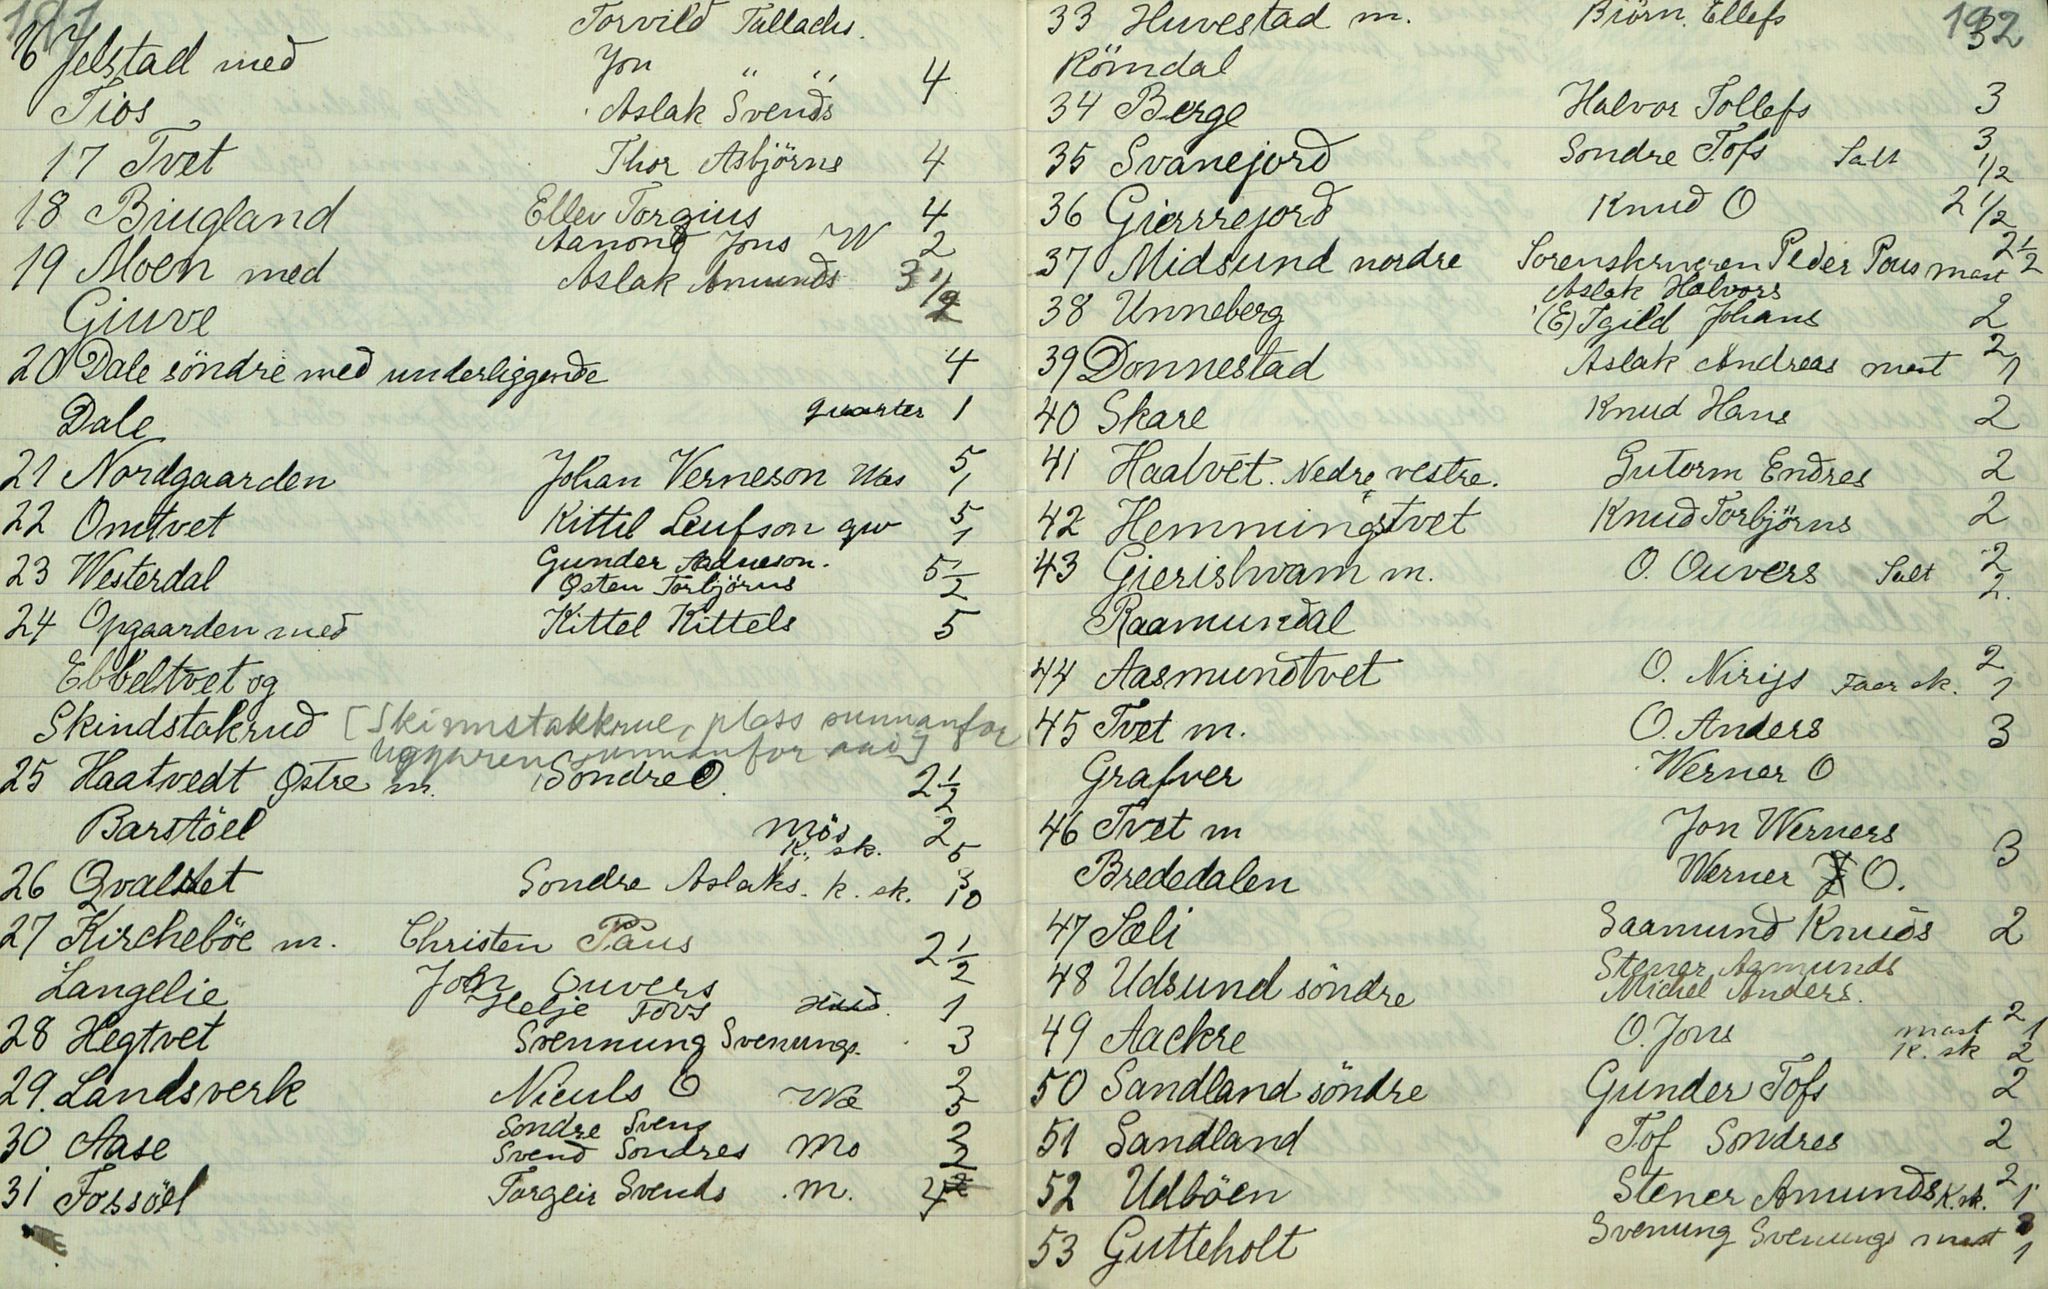 16 Jelstad með Torvild Tallachs.
Jon " " 4
Tios Aslak Svenðs
17 Tvet Thor Asbjörns 4
18 Biugland Ellev Torgius 4
Aanonð Jons W 2
19 Moen með Aslak Amunðs 3 1/2
Giuve
20 Dale söndre með underliggende 4
Dale quarter 1
21 Nordgaarden Johan Verneson 5
1
22 Omtvet Kittil Leufson qw 5
1
23 Westerdal Gunder Aadneson. 5 1/2
Østen Torbjörns
24 Opgaarden með Kittel Kittels 5
Ebbeltvet og
Skindstakrud [Skinnstakkrue, plass sunnanfor
sunnanfor aai]
25 Haatvedt Østre m. Sondre O. 2 1/2
Barstöel Mös 2
K. sk. 5
26 Qvalstet Sondre Aslaks. k. sk. 3
10
27 Kircheböe m. Christen Paus 2 1/2
Langelie John Ouvers
Helje Tovs Huud. 1
28 Hegtvet Svennung Svenungs. 3
29. Landsverk Niculs O We 2
5
30 Aase Sondre Svens 2
Svend Sondres Mo 2
31 Fossöel Torgeir Svends .m. 4
192
33 Huvestad m. Biörn. Ellefs 3
Römdal
34 Berge Halvor Tollefs 3
35 Svanejorð Sondre Tofs Salt 3
1/2
36 Gierrrejorð Knuð O 2 1/2
37 Midsund nordre Sorenskriveren Peder Pous mast 2 1/2
Aslak Halvors
38 Unneberg (E) Igild Johans 2
39 Donnestad Aslak Andreas mast 2
1
40 Skare Knud Hans 2
41 Haatvet. Nedre vestre. Gutorm Enðres 2
42 Hemmingstvet Knuð Torbjörns 2
43 Gierishvam m. O. Ouvers Salt 2
2.
Raamundal
44 Aasmundtvet O. Nirijs Faar sk. 2
1
45 Tvet m. O. Anders 3
Grafver Werner O
46 Tvet m Jon Werners 3
Brededalen Werner O.
47 Sæli Saamund Knuðs 2
48 Udsund söndre Stener Asmunds
Michel Anders.
49 Aackre O. Jons mast 2 1
K. sk 2
50 Sandland söndre Gunder Tofs 2
51 Sandland Tof Sondres 2
52 Udböen Stener Amunðs K. sk. 2
1
53 Gutteholt Svenung Svenungs mast 2
1